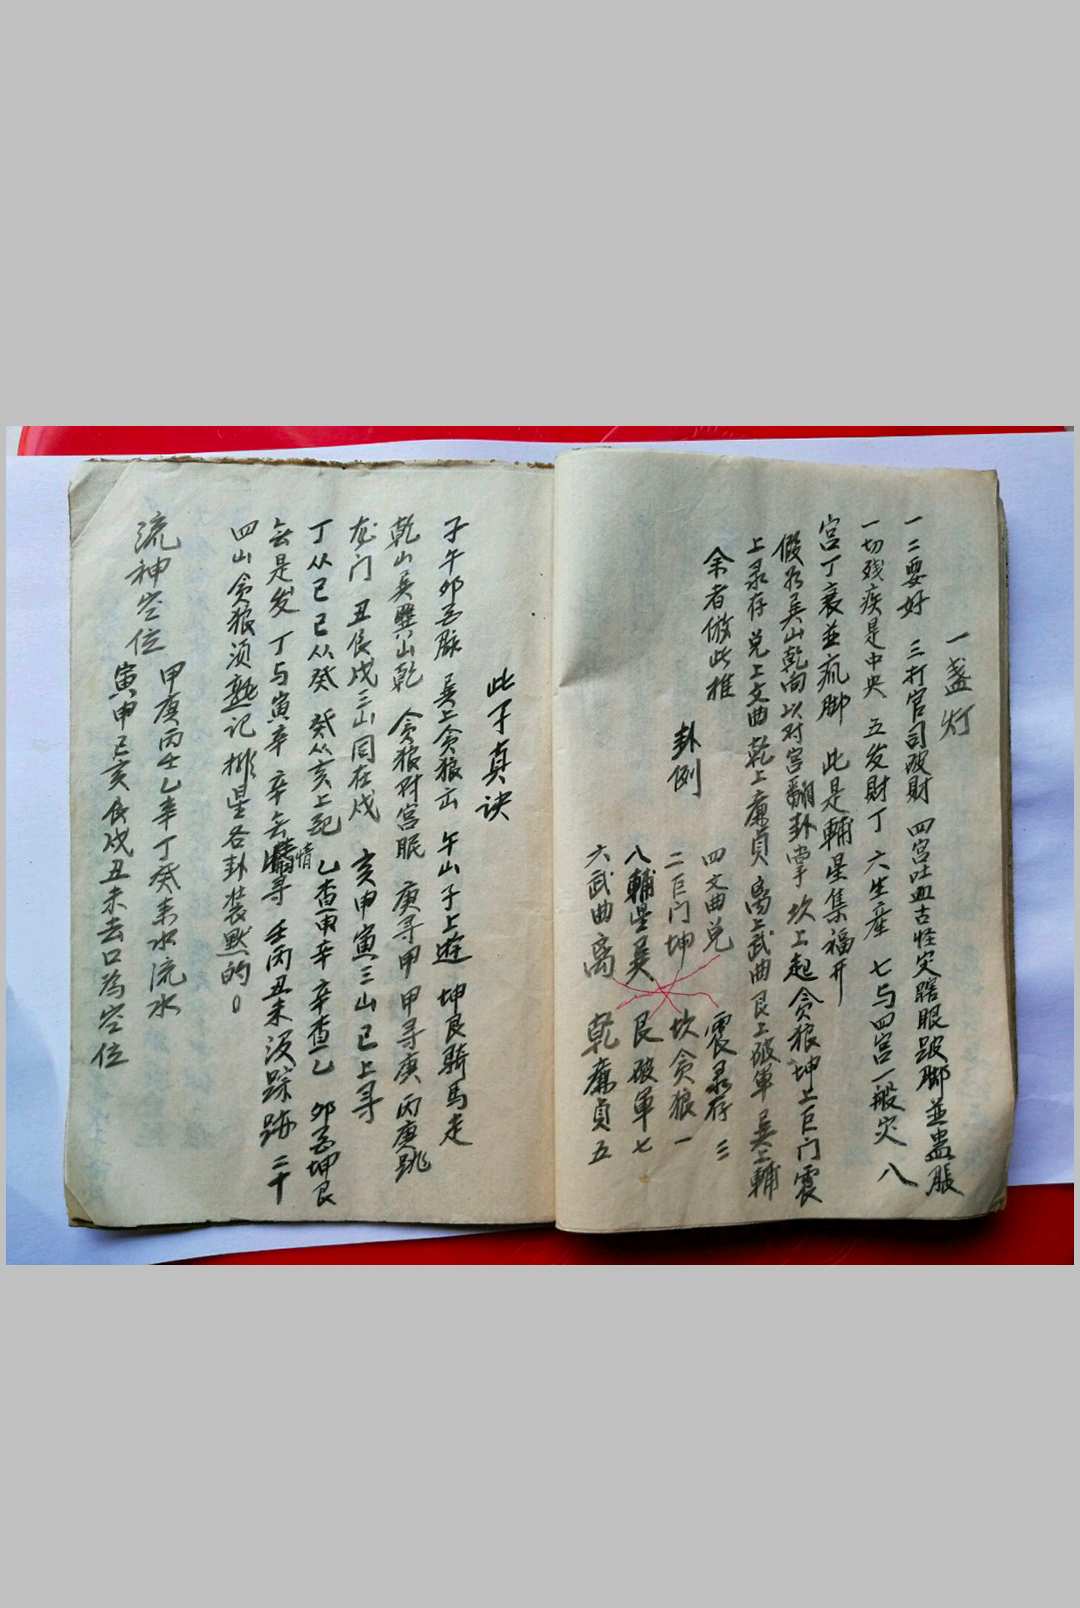 一盏灯
一二要好 三打官司破財 四宫吐血古怪灾瞎眼跛脚並蛊脹
一切残疾是中央 五发財丁 六生産 七与四宫一般灾 八
宫丁衰並疯脚 此是輔星集福开
假如巽山乾向以对宫翻卦掌坎上起贪狼坤上巨门震
上录存兑上文曲乾上廉貞离上武曲艮上破軍巽上輔
余者倣此推
卦例
四文曲兑 震录存三
二巨门坤 坎贪狼一
八輔星巽 艮破軍七
六武曲离 乾廉貞五
此子真诀
子午卯酉脉 巽上贪狼击 午山子上遊 坤艮騎馬走
乾山巽巽山乾 贪狼对宫眠 庚寻甲 甲寻庚 丙庚跳
龙门 丑艮戌三山同在戌 亥甲寅三山巳上寻
丁从巳 巳从癸 癸从亥上起 乙查甲辛 辛查乙 卯酉坤艮
去是发 丁与寅辛 辛去情寻 壬丙丑未没踪跡 二十
四山贪狼须熟记 挪星各卦装默的。
流神空位
甲庚丙壬乙辛丁癸来水流水
寅申巳亥辰戌丑未去口為空位